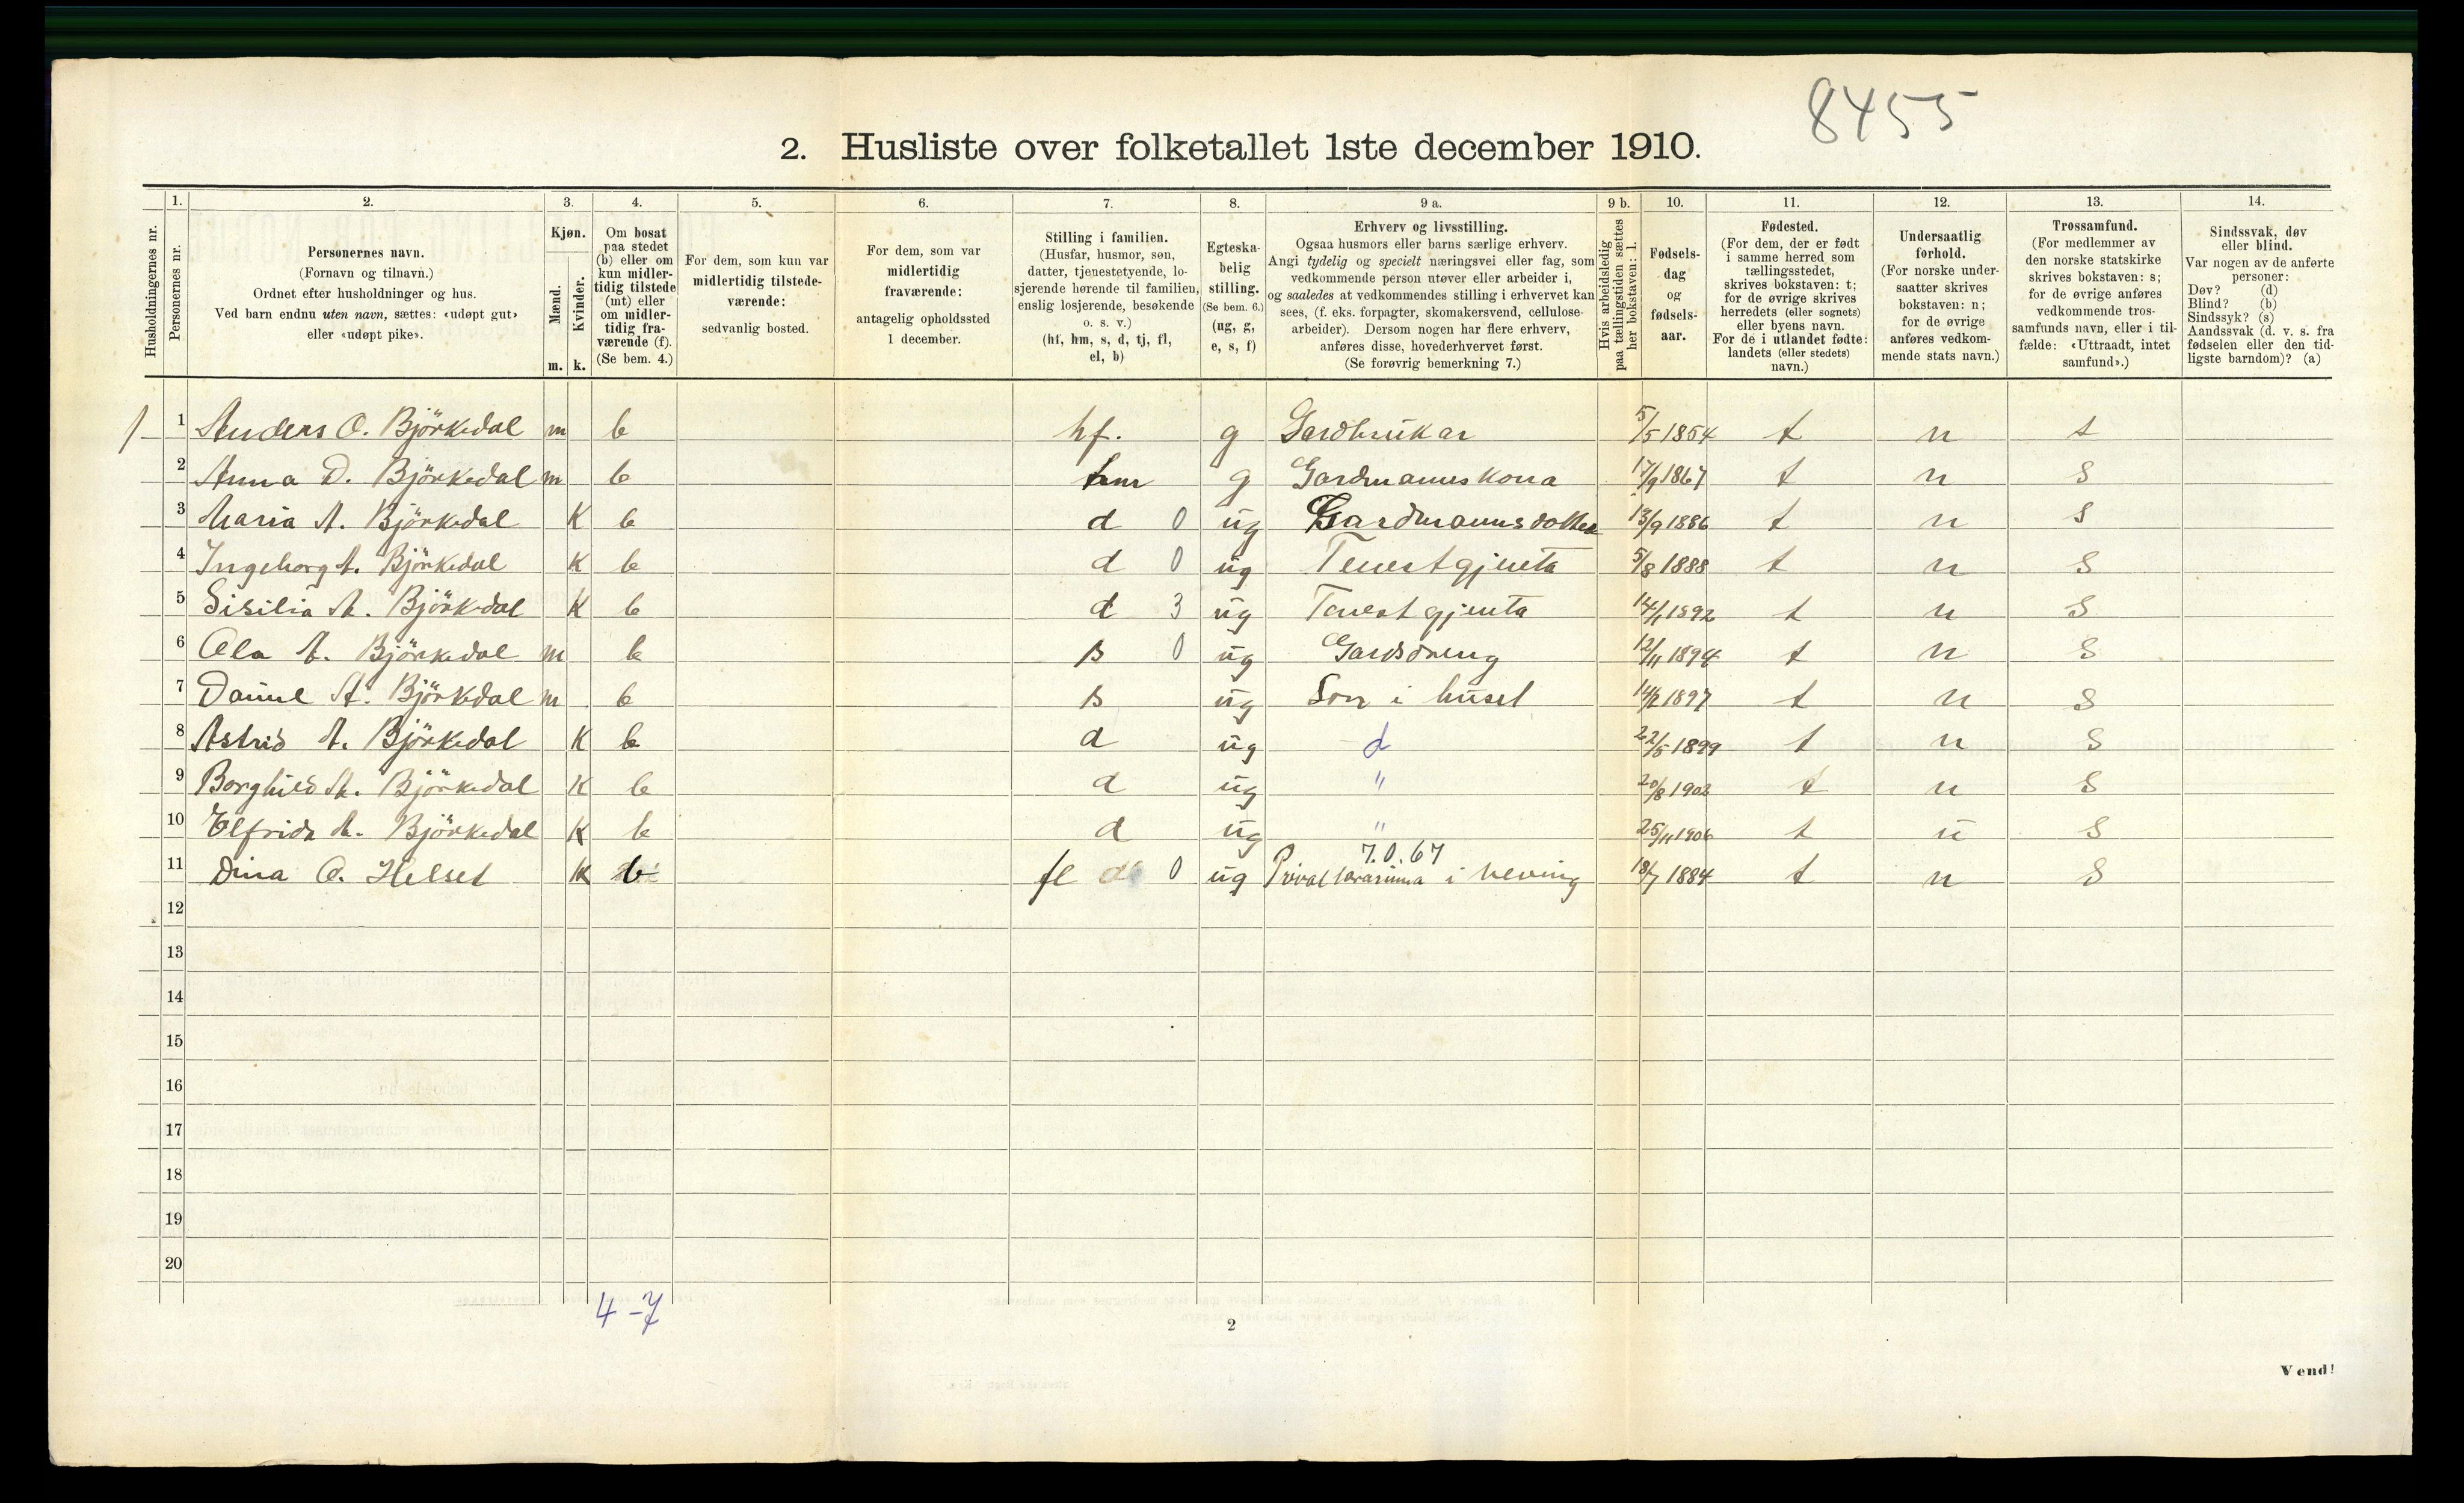 8455
2. Husliste over folketallet 1ste december 1910.
Husholdningernes nr.
1. Personernes nr.
2. Personernes navn.
(Fornavn og tilnavn.)
Ordnet efter husholdninger og hus.
Ved barn endnu uten navn, sættes: «udøpt gut»
eller «udøpt pike».
3. Kjøn.
Mænd. m.
Kvinder. k.
4. Om bosat
paa stedet
(b) eller om
kun midler-
tidig tilstede
(mt) eller
om midler-
tidig fra-
værende (f).
(Se bem. 4.)
5. For dem, som kun var
midlertidig tilstede-
værende:
sedvanlig bosted.
6. For dem, som var
midlertidig
fraværende:
antagelig opholdssted
1 december.
7. Stilling i familien.
(Husfar, husmor, søn,
datter, tjenestetyende, lo-
sjerende hørende til familien,
enslig losjerende, besøkende
o. s. v.)
(hf, hm, s, d, tj, fl,
el, b)
8. Egteska-
belig
stilling.
(Se bem. 6.)
(ug, g,
e, s, f)
9 a. Erhverv og livsstilling.
Ogsaa husmors eller barns særlige erhverv.
Angi tydelig og specielt næringsvei eller fag, som
vedkommende person utøver eller arbeider i,
og saaledes at vedkommendes stilling i erhvervet kan
sees, (f. eks. forpagter, skomakersvend, cellulose-
arbeider). Dersom nogen har flere erhverv,
anføres disse, hovederhvervet først.
(Se forøvrig bemerkning 7.)
9 b. Hvis arbeidsledig
paa tællingstiden sættes
her bokstaven: l.
10. Fødsels-
dag
og
fødsels-
aar.
11. Fødested.
(For dem, der er født
i samme herred som
tællingsstedet,
skrives bokstaven: t;
for de øvrige skrives
herredets (eller sognets)
eller byens navn.
For de i utlandet fødte:
landets (eller stedets)
navn.)
12. Undersaatlig
forhold.
(For norske under-
saatter skrives
bokstaven: n;
for de øvrige
anføres vedkom-
mende stats navn.)
13. Trossamfund.
(For medlemmer av
den norske statskirke
skrives bokstaven: s;
for de øvrige anføres
vedkommende tros-
samfunds navn, eller i til-
fælde: «Uttraadt, intet
samfund».)
14. Sindssvak, døv
eller blind.
Var nogen av de anførte
personer:
Døv? (d)
Blind? (b)
Sindssyk? (s)
Aandssvak (d. v. s. fra
fødselen eller den tid-
ligste barndom)? (a)
1 Anders O. Björkedal m b hf. g Gardbrukar 5/5 1854 t n s
2 Anna D. Björkedal m b hm g Gardmannskona 17/9 1867 t n s
3 Maria A. Björkedal K b d 0 ug Gardmannsdotter 13/9 1886 t n s
4 Ingeborg A. Björkedal K b d 0 ug Tenestgjenta 5/8 1888 t n s
5 Sisilia A. Björkedal K b d 3 ug Tenestgjenta 14/1 1892 t n s
6 Ola A. Björkedal m b s 0 ug Gardsdreng 12/11 1894 t n s
7 Daniel A. Björkedal m b s ug Son i huset 14/2 1897 t n s
8 Astrid A. Björkedal K b d ug d 22/5 1899 t n s
9 Borghild A. Björkedal K b d ug " 20/8 1902 t n s
10 Elfrida A. Björkedal K b d ug " 25/11 1906 t n s
7.0.67
11 Dina O. Helset K b fl d 0 ug Privat lærarinna i veving 18/7 1884 t n s
12
13
14
15
16
17
18
19
20
4-7
2
Vend!